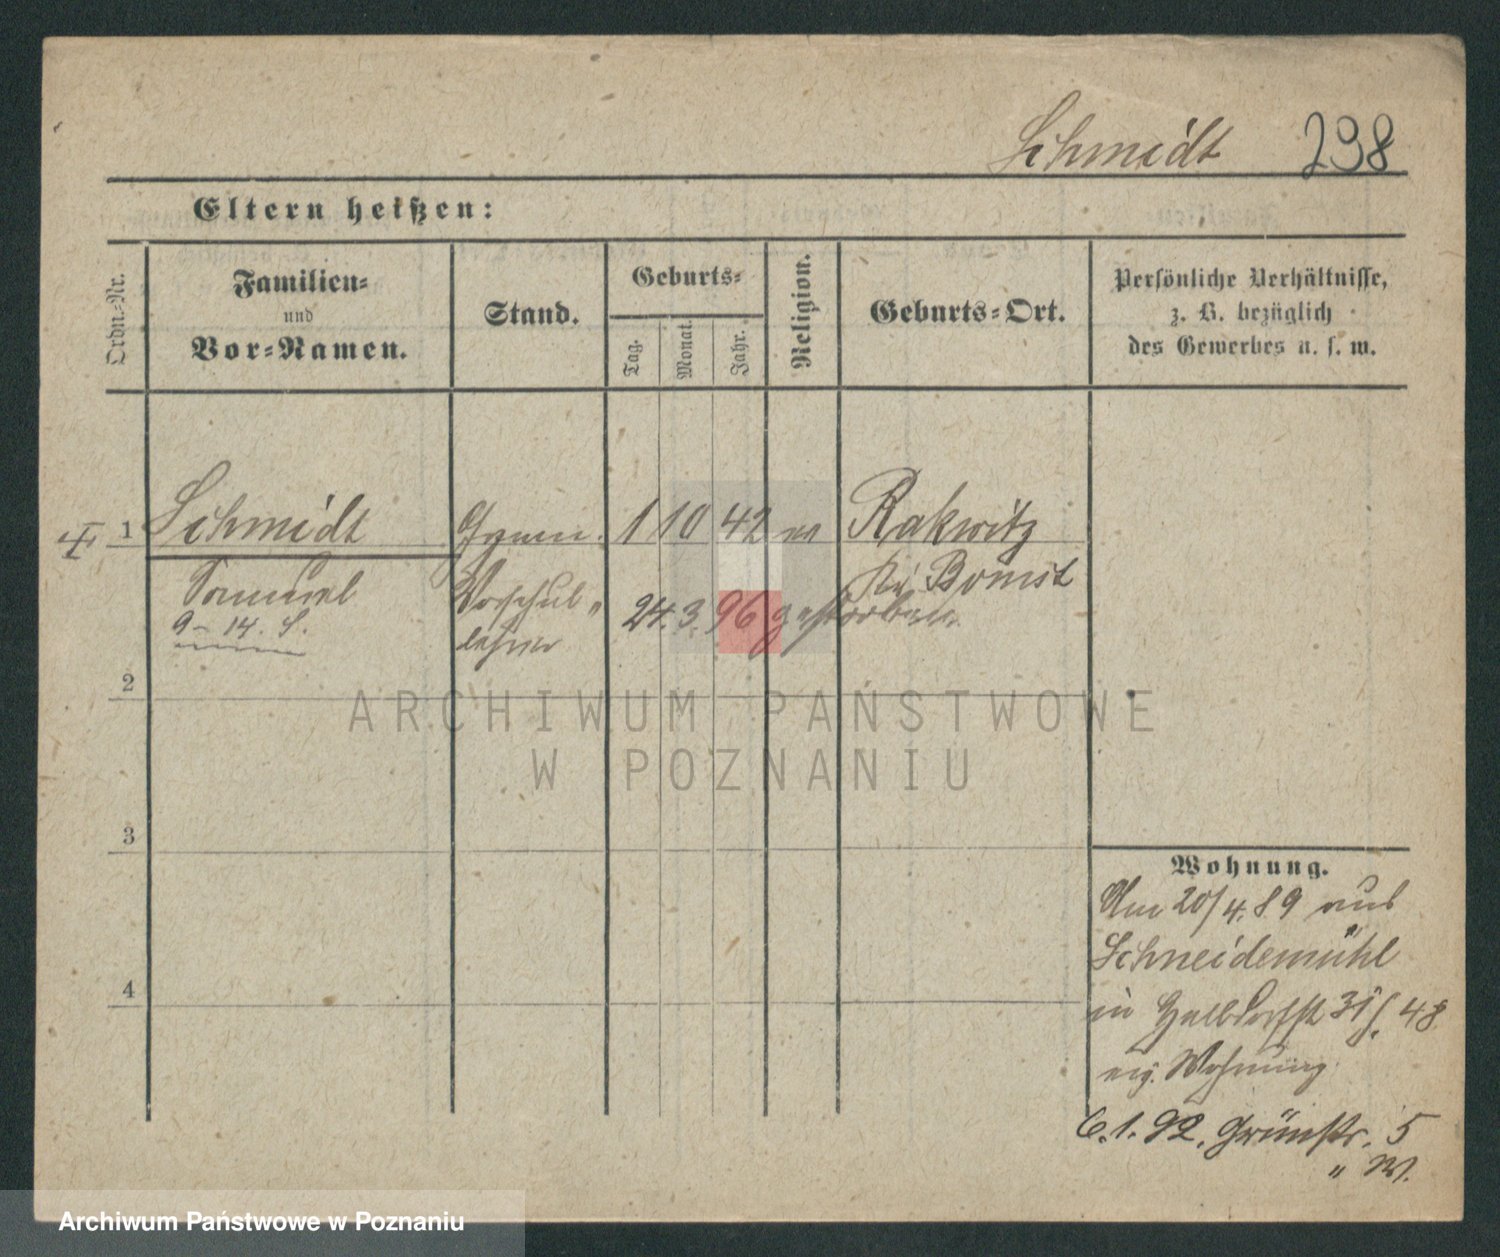 Schmidt 298
Eltern heißen:
Ordn.-Nr.
Familien-
und
Vor-Namen.
Stand.
Geburts-
Tag.
Monat.
Jahr.
Religion.
Geburts-Ort.
Persönliche Verhältnisse,
z. B. bezüglich
des Gewerbes u. s. w.
1 Schmidt Gymn. 1 10 42 ev Rakwitz
Samuel Vorschul- Kr. Bomst
9-14. S. lehrer 24. 3. 96 gestorben
2
ARCHIWUM PAŃSTWOWE
W POZNANIU
3
4
Wohnung.
Am 20/4. 89 aus
Schneidemühl
in Halbdorfstr 31 48
eig. Wohnung
6. 1. 92. Grünstr. 5
" W.
Archiwum Państwowe w Poznaniu